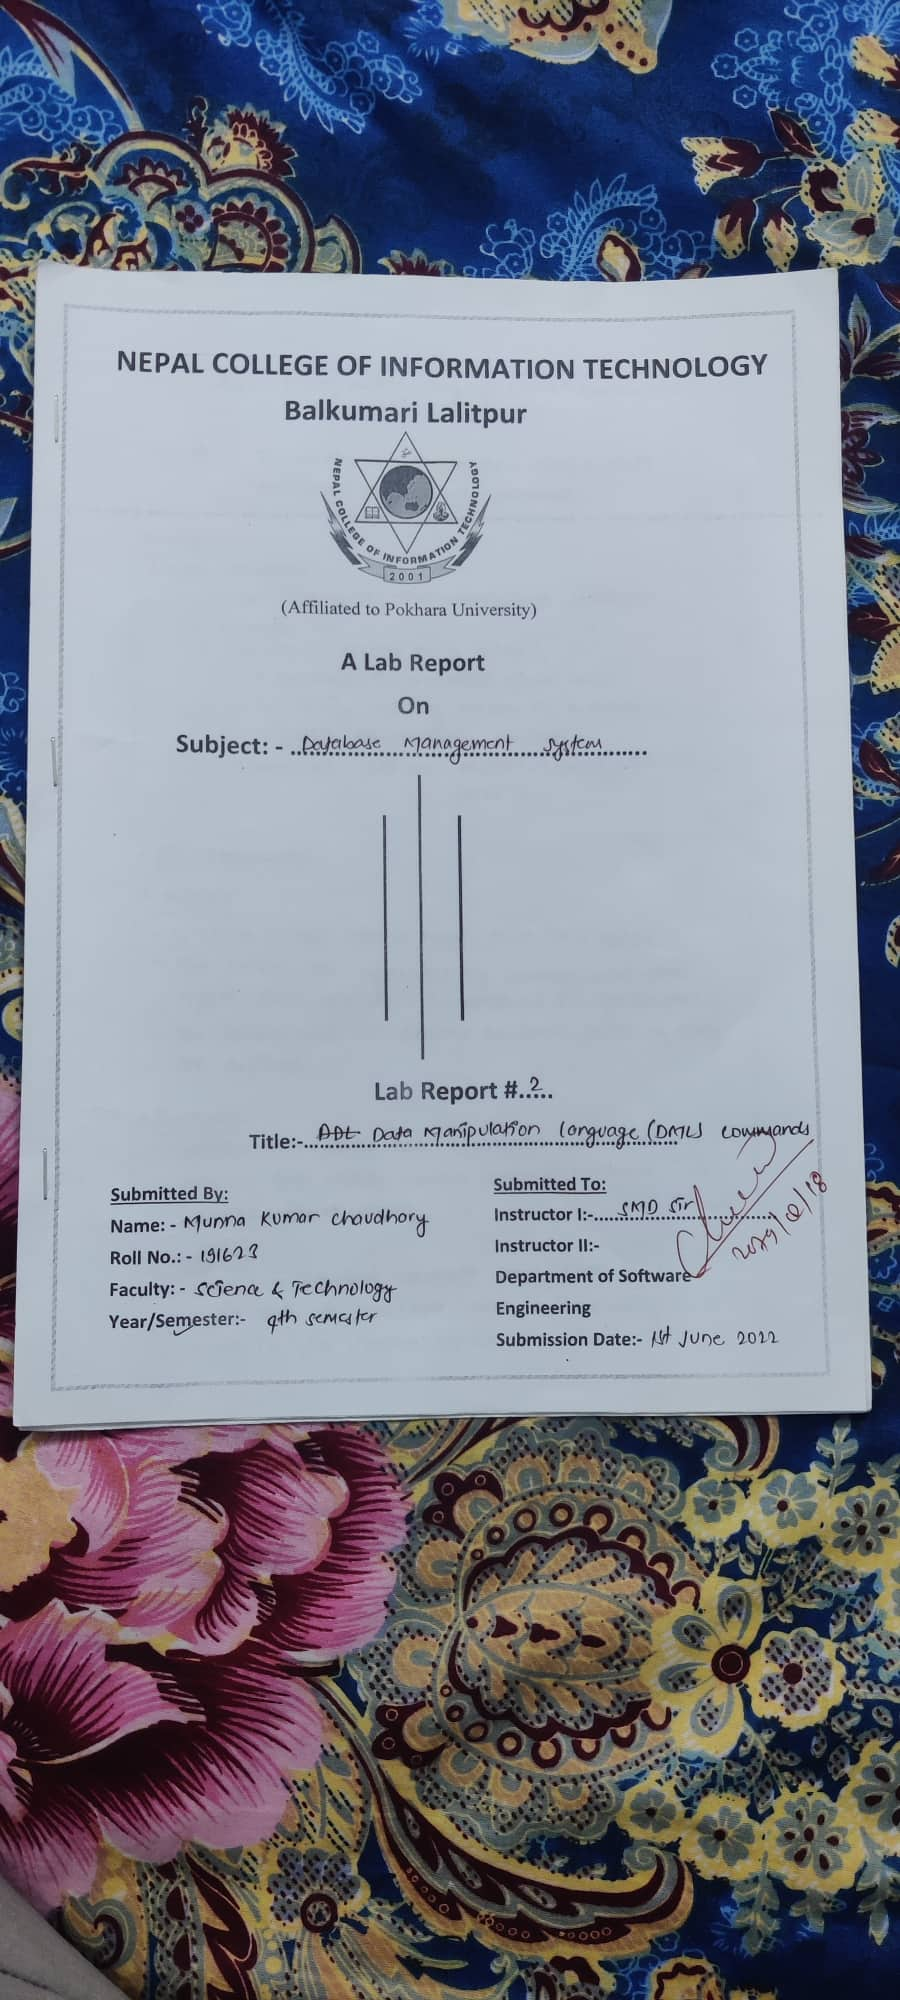 NEPAL COLLEGE OF INFORMATION TECHNOLOGY
Balkumari Lalitpur
NEPAL COLLEGE OF INFORMATION TECHNOLOGY
2001
(Affiliated to Pokhara University)
A Lab Report
On
Subject: - Database Management System
Lab Report #..2..
Title:- DDL Data Manipulation Language (DML) commands
Submitted By:
Name: - Munna Kumar Chaudhary
Roll No.: - 191623
Faculty: - Science & Technology
Year/Semester:- 4th semester
Submitted To:
Instructor I:- SMD Sir
Instructor II:-
Department of Software
Engineering
Submission Date:- 1st June 2022